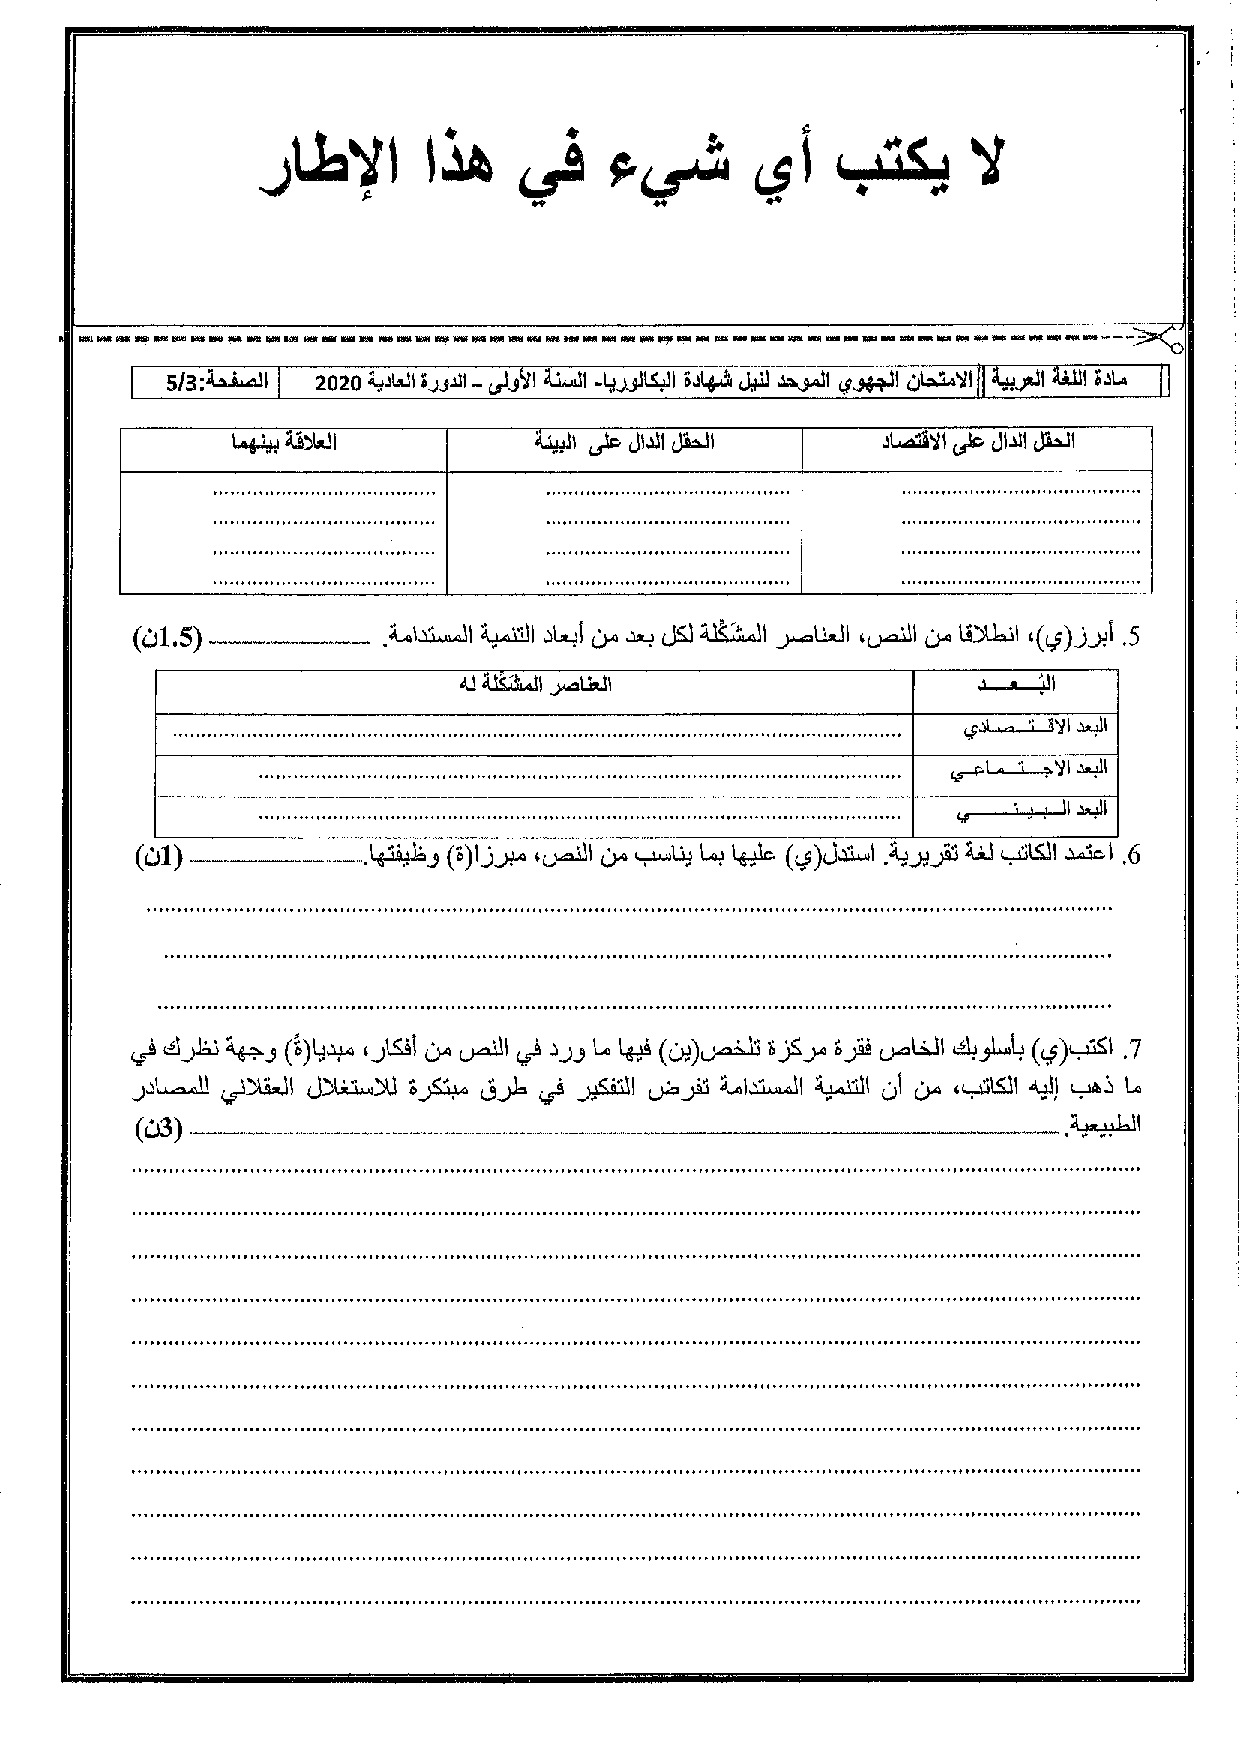 لا يكتب أي شيء في هذا الإطار
مادة اللغة العربية الامتحان الجهوي الموحد لنيل شهادة البكالوريا- السنة الأولى – الدورة العادية 2020 الصفحة:5/3
الحقل الدال على الاقتصاد الحقل الدال على البيئة العلاقة بينهما
5. أبرز(ي)، انطلاقا من النص، العناصر المشَكِّلة لكل بعد من أبعاد التنمية المستدامة. (1.5ن)
البُعد العناصر المشَكِّلة له
البعد الاقتصادي
البعد الاجتماعي
البعد البيئي
6. اعتمد الكاتب لغة تقريرية. استدل(ي) عليها بما يناسب من النص، مبرزا(ة) وظيفتها. (1ن)
7. اكتب(ي) بأسلوبك الخاص فقرة مركزة تلخص(ين) فيها ما ورد في النص من أفكار، مبديا(ةً) وجهة نظرك في
ما ذهب إليه الكاتب، من أن التنمية المستدامة تفرض التفكير في طرق مبتكرة للاستغلال العقلاني للمصادر
الطبيعية. (3ن)